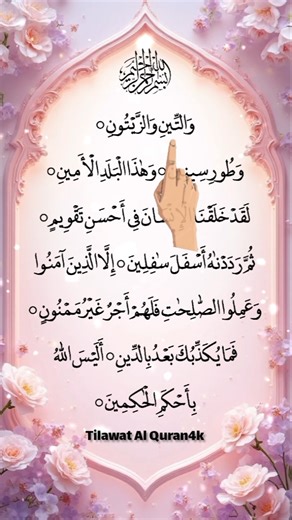 بسم الله الرحمن الرحيم
وَالتِّينِ وَالزَّيْتُونِ
وَطُورِ وَهَٰذَا الْبَلَدِ الْأَمِينِ
لَقَدْ خَلَقْنَا فِي أَحْسَنِ تَقْوِيمٍ
ثُمَّ رَدَدْنَٰهُ أَسْفَلَ سَٰفِلِينَ إِلَّا الَّذِينَ آمَنُوا
وَعَمِلُوا الصَّٰلِحَٰتِ فَلَهُمْ أَجْرٌ غَيْرُ مَمْنُونٍ
فَمَا يُكَذِّبُكَ بَعْدُ بِالدِّينِ أَلَيْسَ اللَّهُ
بِأَحْكَمِ الْحَٰكِمِينَ
Tilawat Al Quran4k